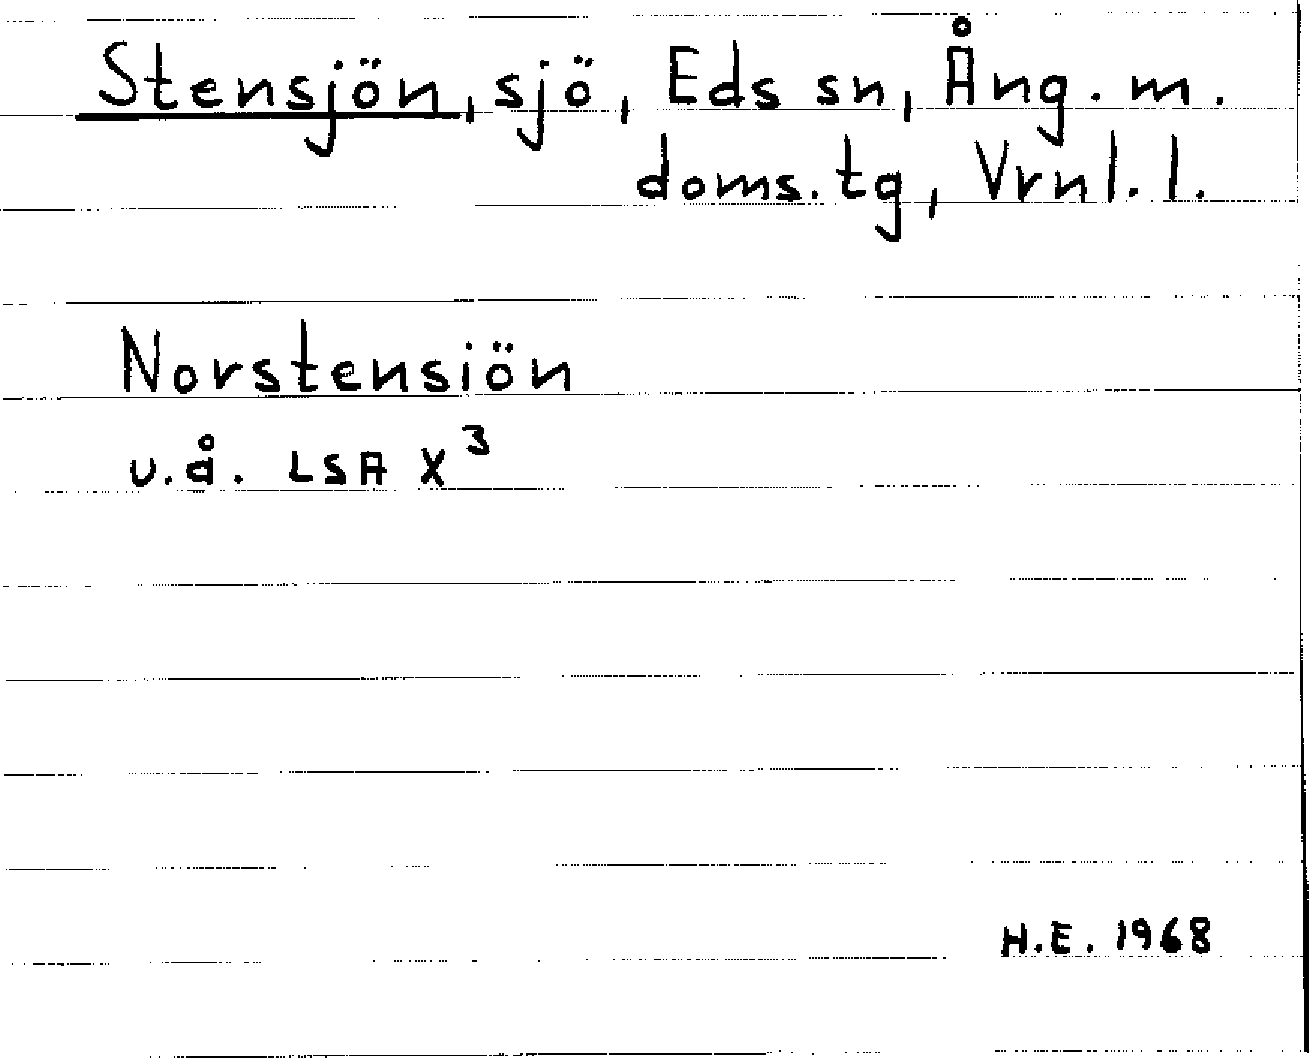 Stensjön, sjö, Eds sn, Ång. m.
doms. tg, Vrnl. l.
Norstensiön
u.å. LSA X³
H.E. 1968